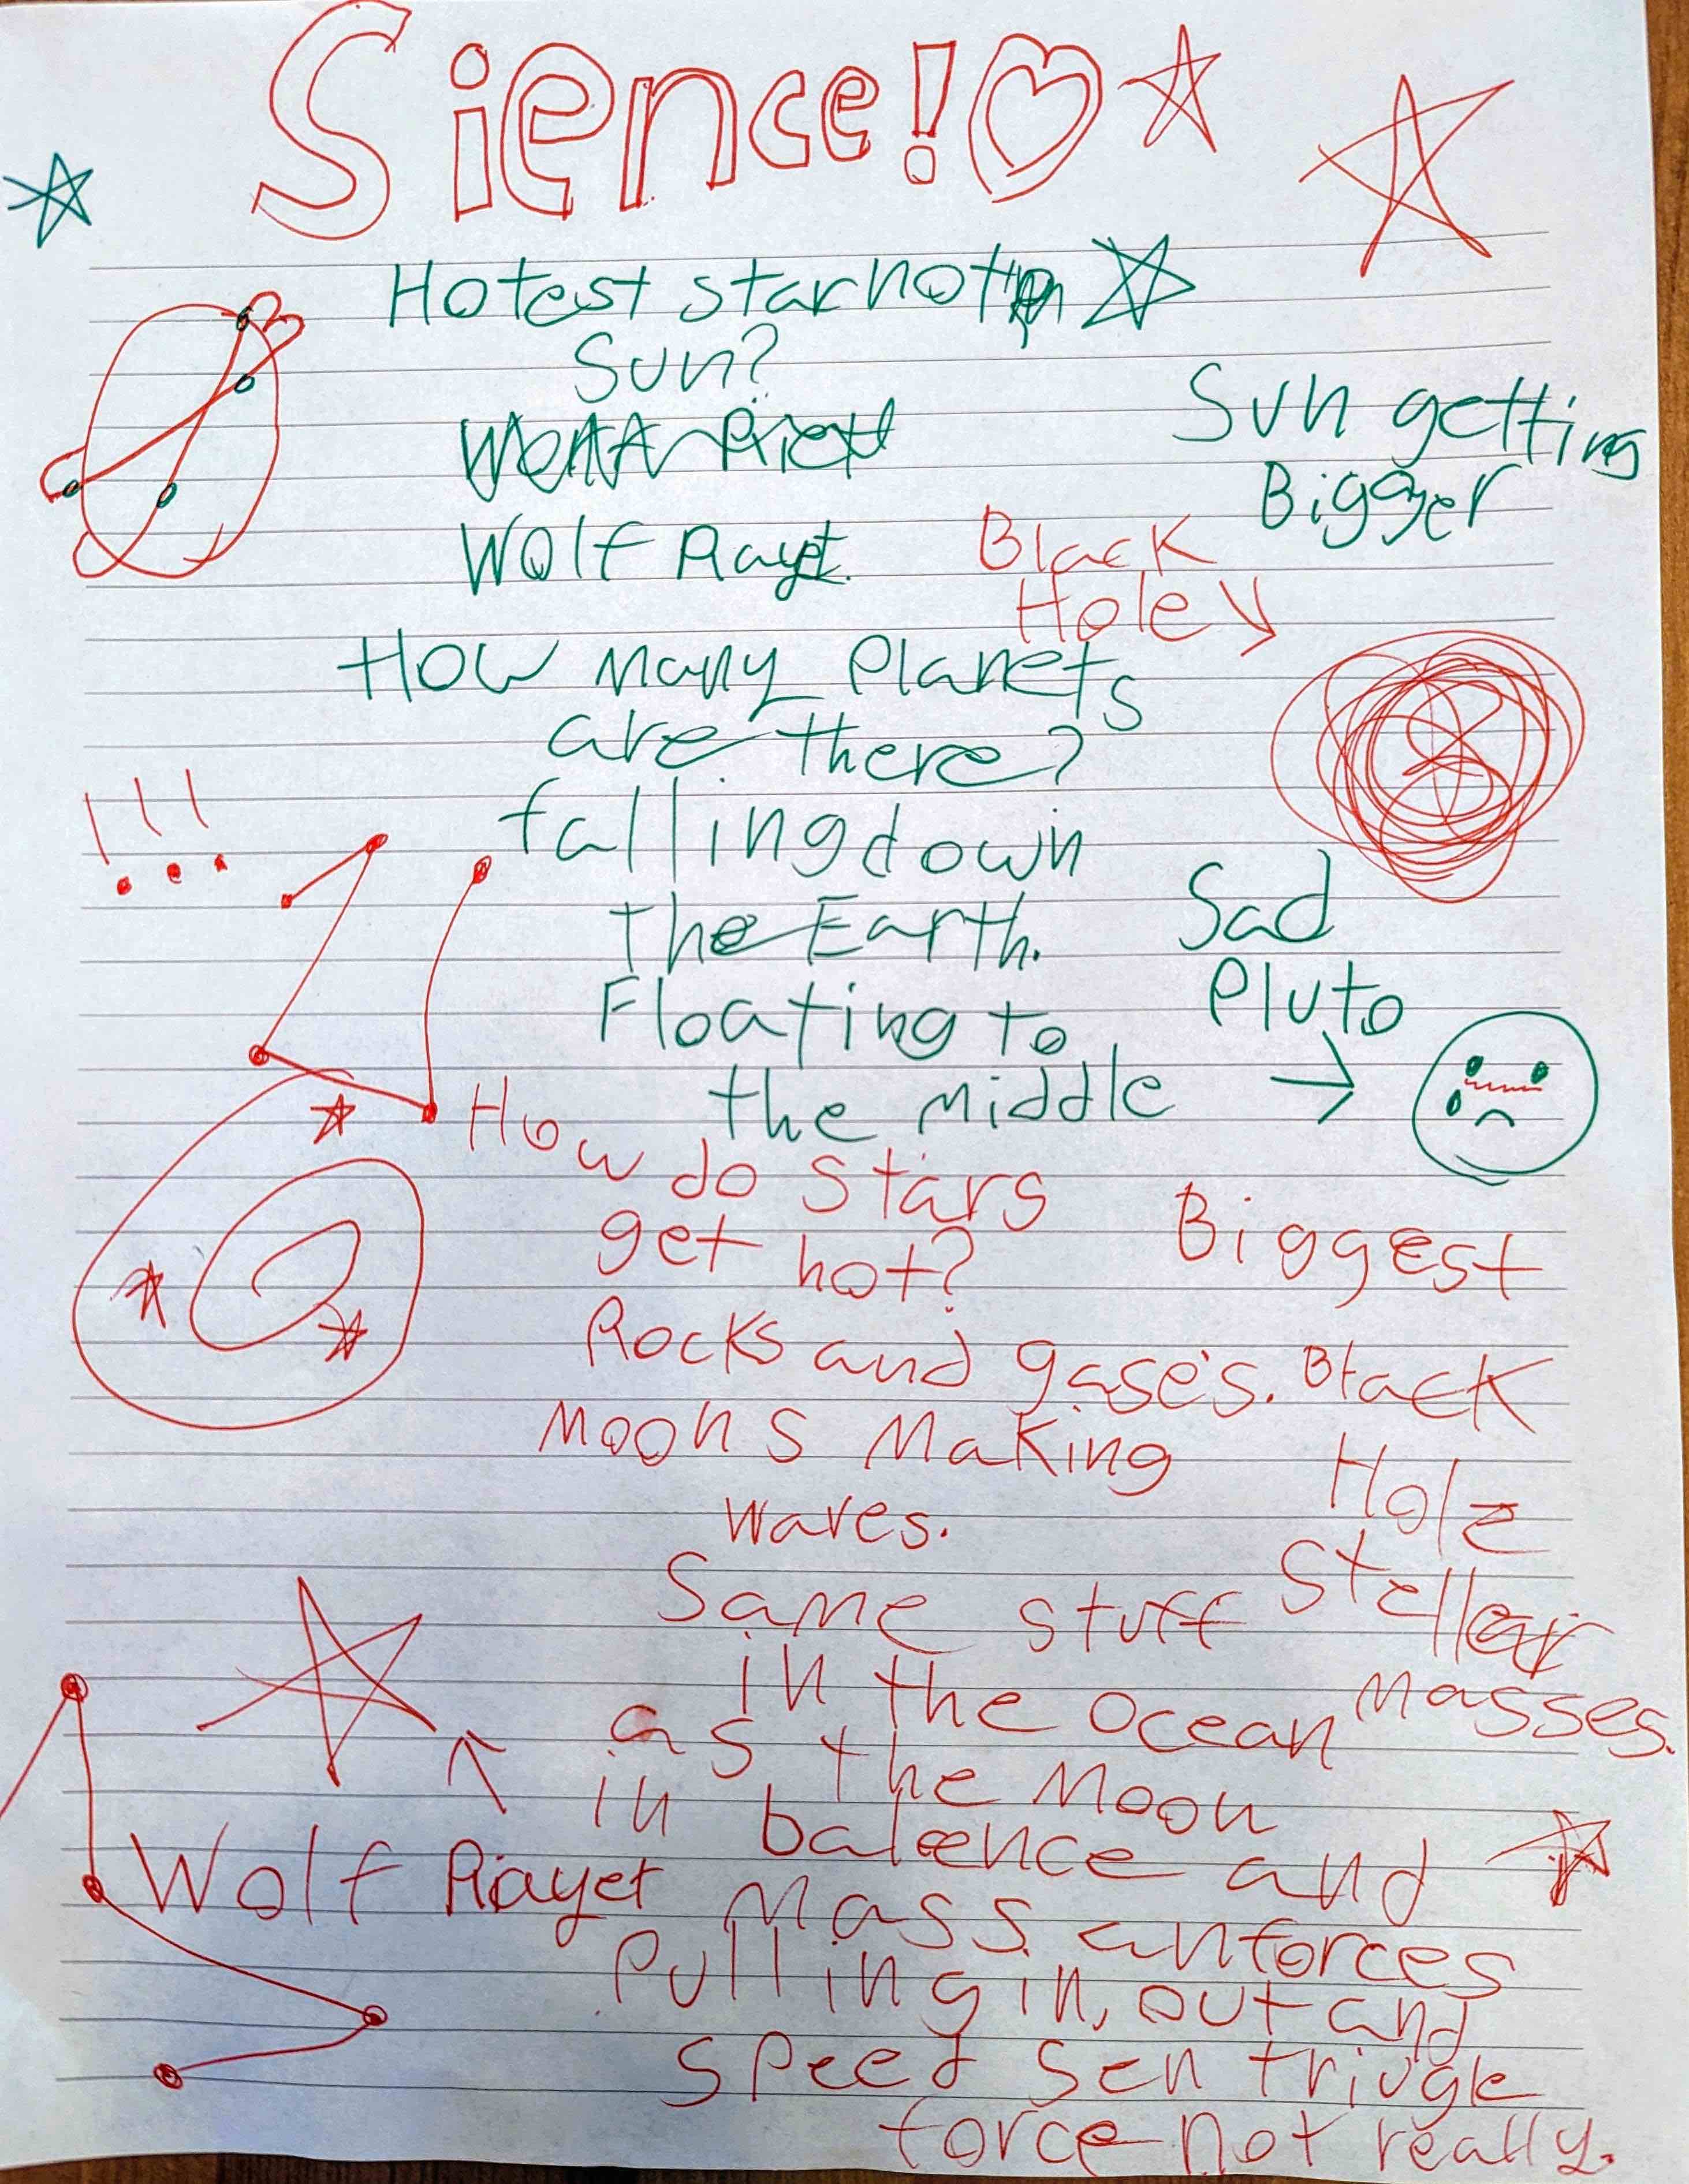 Sience!
Hotest star not
Sun?
Wolf Rayet.
Sun getting
Bigger
Black
Hole
How many Planets
are there?
falling down
the Earth.
Floating to
the middle
Sad
Pluto
How do stars
get hot?
Rocks and gase's.
Moons Making
waves.
Biggest
Black
Hole
Stellar
Masses.
Same stuff
in the ocean
as the Moon
in balence and
Mass anforces
Pulling in, out and
speed sen triugle
force not really.
!!!
Wolf Rayet